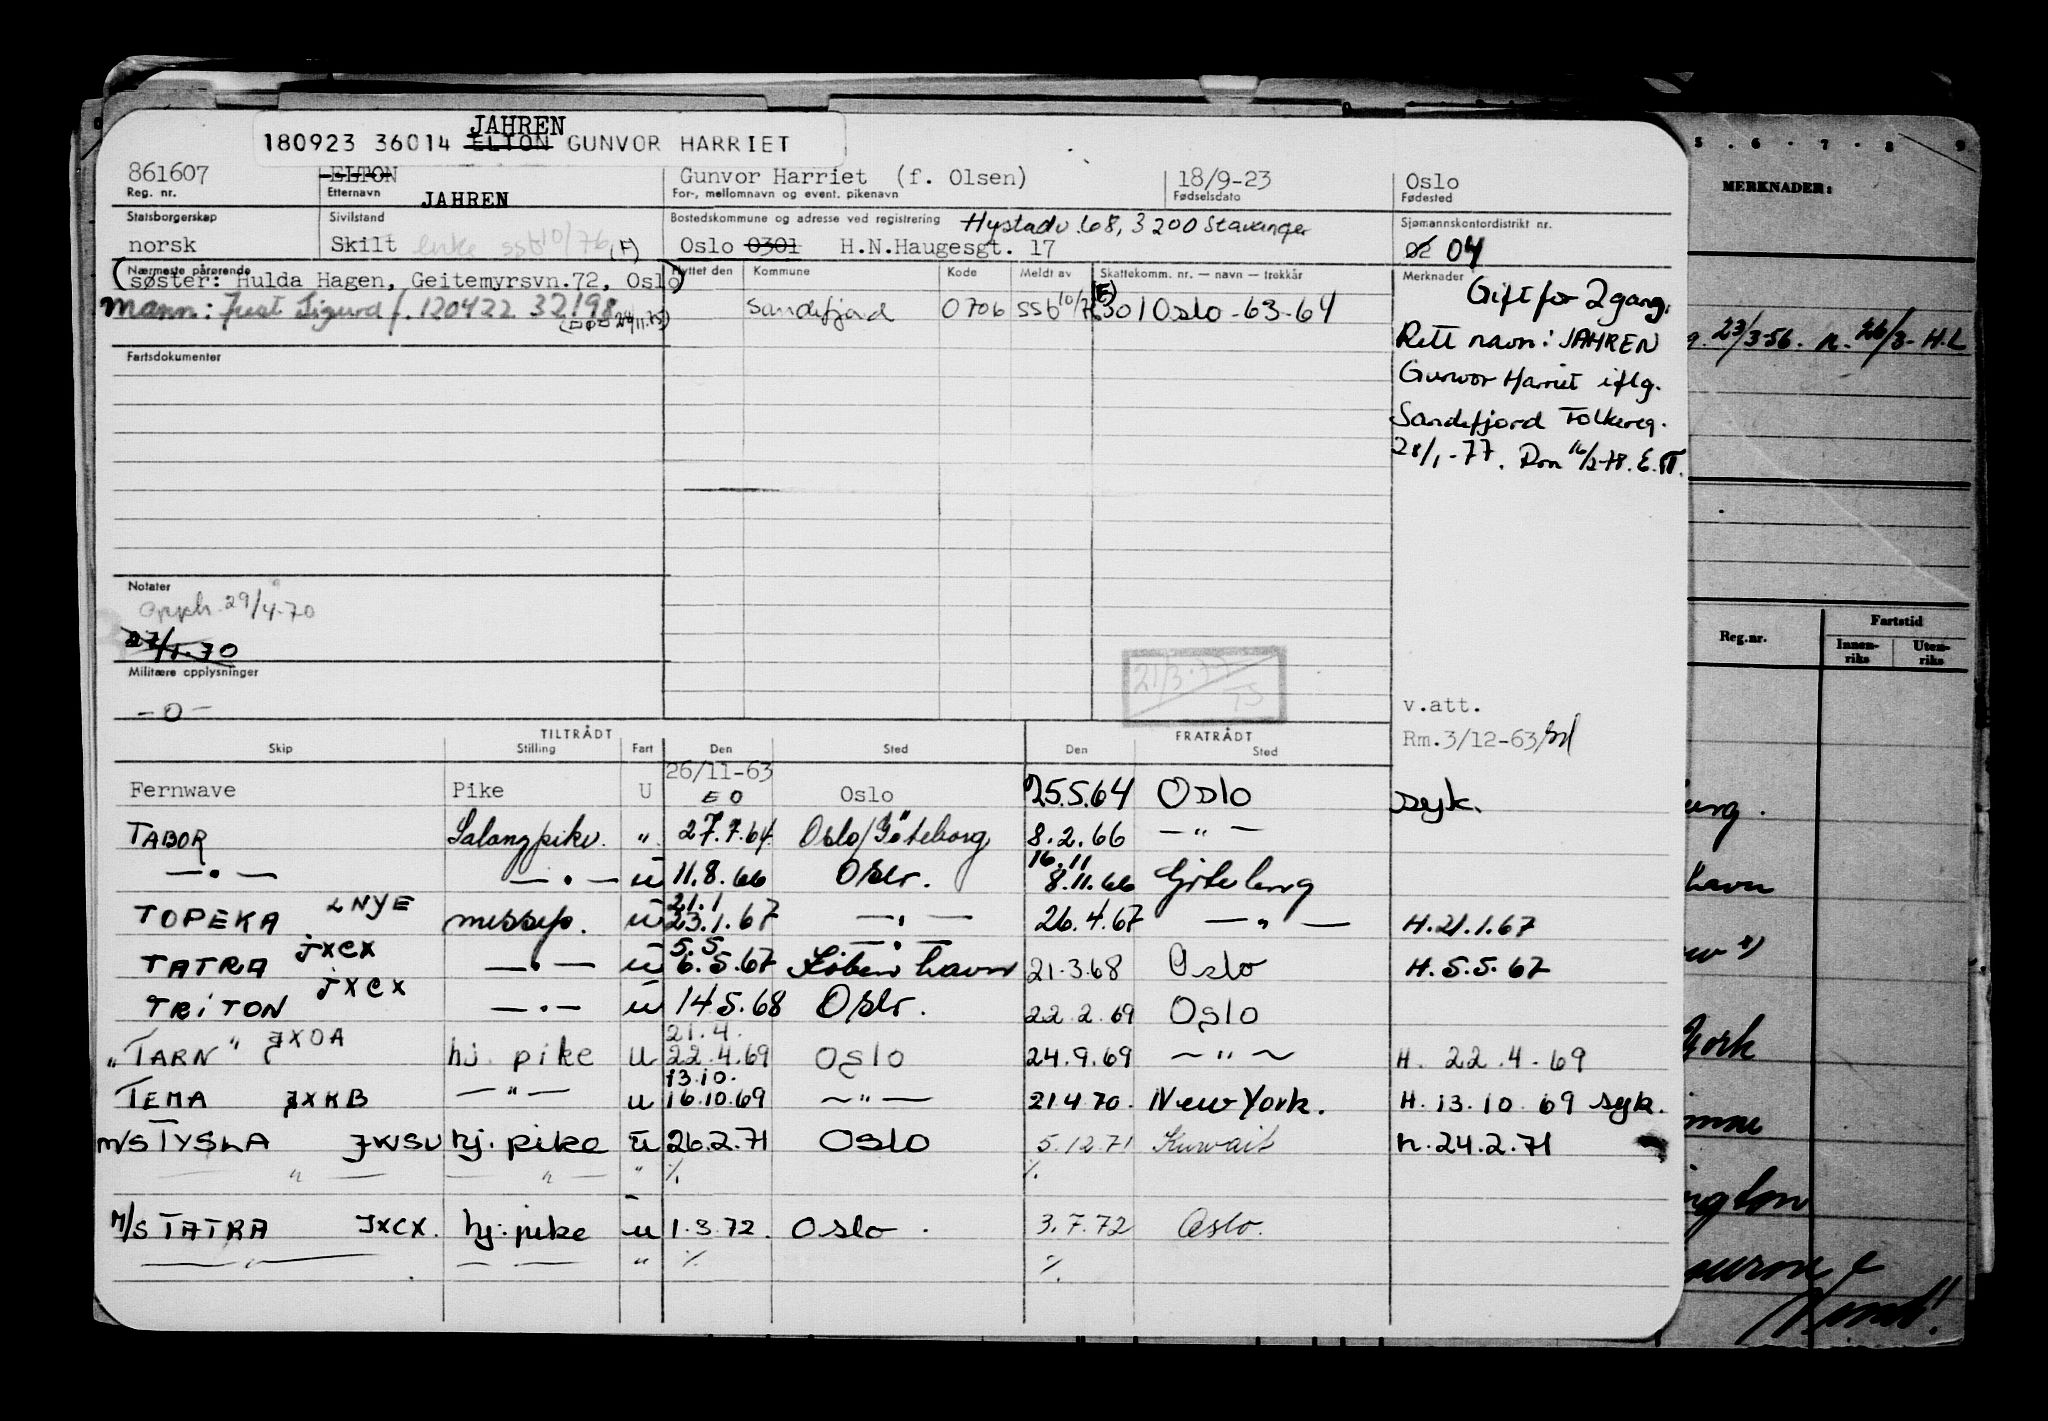 JAHREN
180923 36014 ELTON GUNVOR HARRIET
861607 ELTON Gunvor Harriet (f. Olsen) 18/9-23 Oslo
Reg. nr. Etternavn JAHREN For-, mellomnavn og event. pikenavn Fødselsdato Fødested
Statsborgerskap Sivilstand Bostedskommune og adresse ved registrering Hystadv. 68, 3200 Stavanger Sjømannskontordistrikt nr.
norsk Skilt enke ssb 10/76 (F) Oslo 0301 H.N.Haugesgt. 17 02 04
Nærmeste pårørende Flyttet den Kommune Kode Meldt av Skattekomm. nr. — navn — trekkår Merknader
(søster: Hulda Hagen, Geitemyrsvn.72, Oslo)
Mann: Just Sigurd f. 120422 32198 Sandefjord 0706 ssb 10/7 301 Oslo-63-64
24/11.75)
Gift for 2 gang.
Rett navn: JAHREN
Gunvor Harriet iflg.
Sandefjord Folkereg.
28/1-77. 16/2-78. E.
Fartsdokumenter
Notater
Opph. 29/4-70
27/1.70
Militære opplysninger
-0-
21/3.
v.att.
Rm.3/12-63/
TILTRÅDT FRATRÅDT
Skip Stilling Fart Den Sted Den Sted
Fernwave Pike U 26/11-63 EO Oslo 25.5.64 Oslo syk.
TABOR Salongpike. " 27.7.64 Oslo/Göteborg 8.2.66 — " —
— " — — " — u 11.8.66 Oslo. 16.11 8.11.66 Göteborg
TOPEKA LNYE messep. u 21.1 23.1.67 — " — 26.4.67 — " — H.21.1.67
TATRA JXCX — " — u 5.5 6.5.67 København 21.3.68 Oslo H.5.5.67
TRITON JXCX — " — u 14.5.68 Oslo. 22.2.69 Oslo
"TARN" JXOA hj. pike u 21.4. 22.4.69 Oslo 24.9.69 — " — H. 22.4.69
TEMA JXKB — " — u 13.10. 16.10.69 — " — 21.4.70. New York. H. 13.10.69 syk.
M/S TYSLA JWSU hj. pike u 26.2.71 OSLO 5.12.71 Kuwait h. 24.2.71
— " — — " — " %. %.
M/S TATRA JXCX. hj. pike u 1.3.72. Oslo. 3.7.72 Oslo.
— " — — — " %. %.
5 . 6 . 7 . 8 9
MERKNADER:
23/3-56. n. 26/3- H.L
Reg.nr. Fartstid
Innen-riks Uten-riks